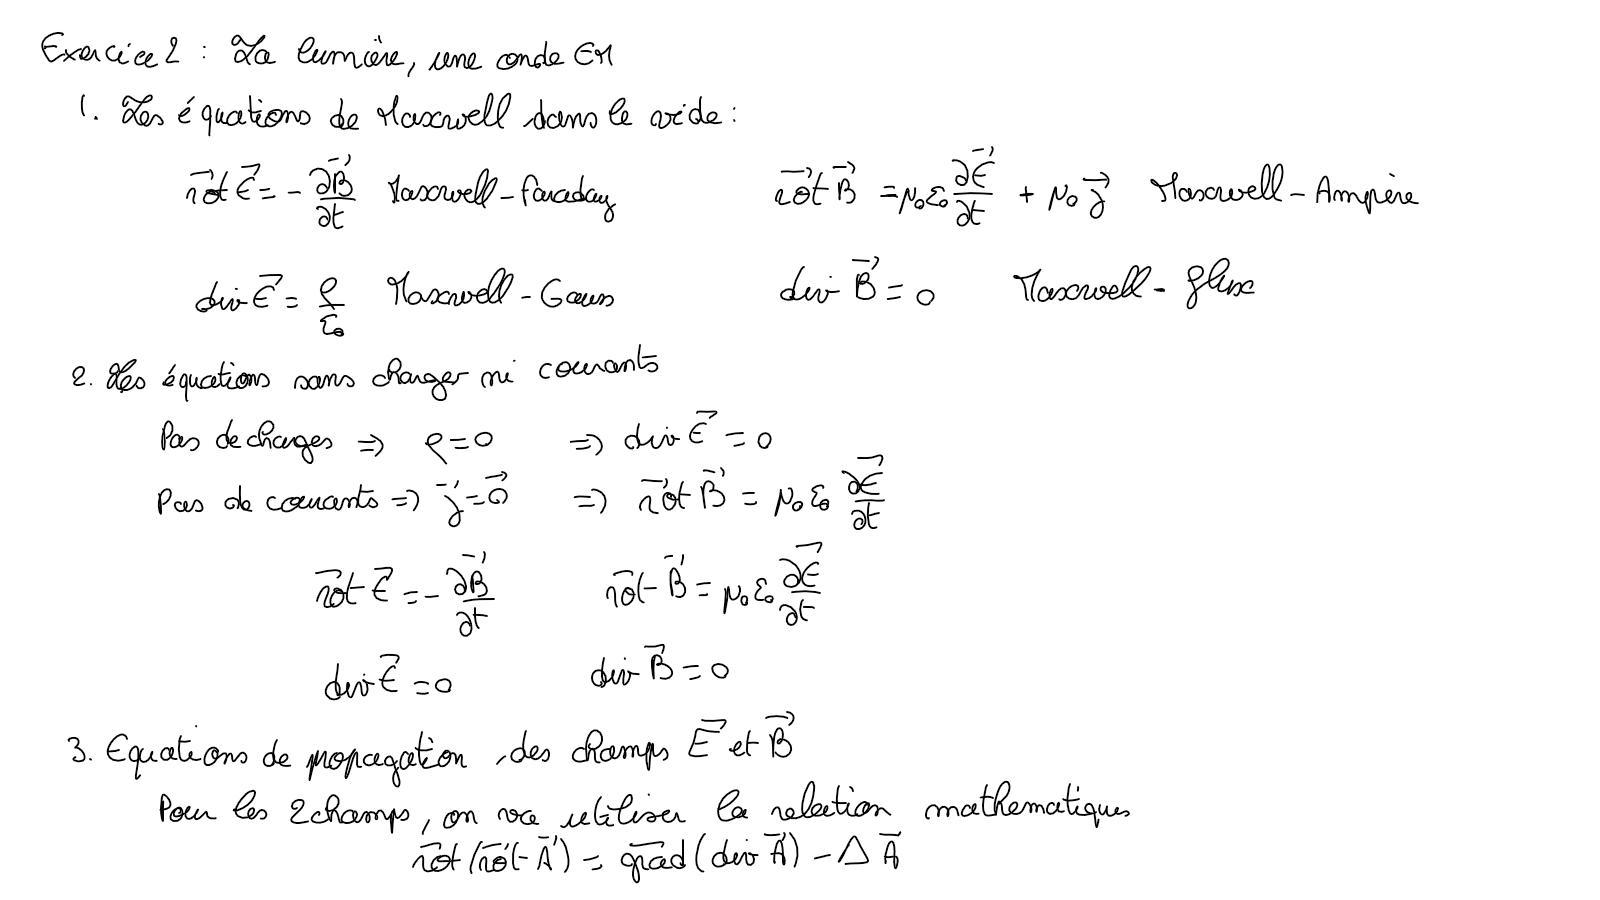 Exercice 2 : La lumière, une onde EM
1. Les équations de Maxwell dans le vide :
$\vec{rot}\,\vec{E} = -\frac{\partial \vec{B}}{\partial t}$ Maxwell-Faraday $\vec{rot}\,\vec{B} = \mu_0 \varepsilon_0 \frac{\partial \vec{E}}{\partial t} + \mu_0 \vec{j}$ Maxwell-Ampère
$div\,\vec{E} = \frac{\rho}{\varepsilon_0}$ Maxwell-Gauss $div\,\vec{B} = 0$ Maxwell-flux
2. Les équations sans charges ni courants
Pas de charges ⇒ $\rho = 0$ ⇒ $div\,\vec{E} = 0$
Pas de courants ⇒ $\vec{j} = \vec{0}$ ⇒ $\vec{rot}\,\vec{B} = \mu_0 \varepsilon_0 \frac{\partial \vec{E}}{\partial t}$
$\vec{rot}\,\vec{E} = -\frac{\partial \vec{B}}{\partial t}$ $\vec{rot}\,\vec{B} = \mu_0 \varepsilon_0 \frac{\partial \vec{E}}{\partial t}$
$div\,\vec{E} = 0$ $div\,\vec{B} = 0$
3. Equations de propagation des champs $\vec{E}$ et $\vec{B}$
Pour les 2 champs, on va utiliser la relation mathematiques
$\vec{rot}(\vec{rot}\,\vec{A}) = \vec{grad}(div\,\vec{A}) - \Delta \vec{A}$